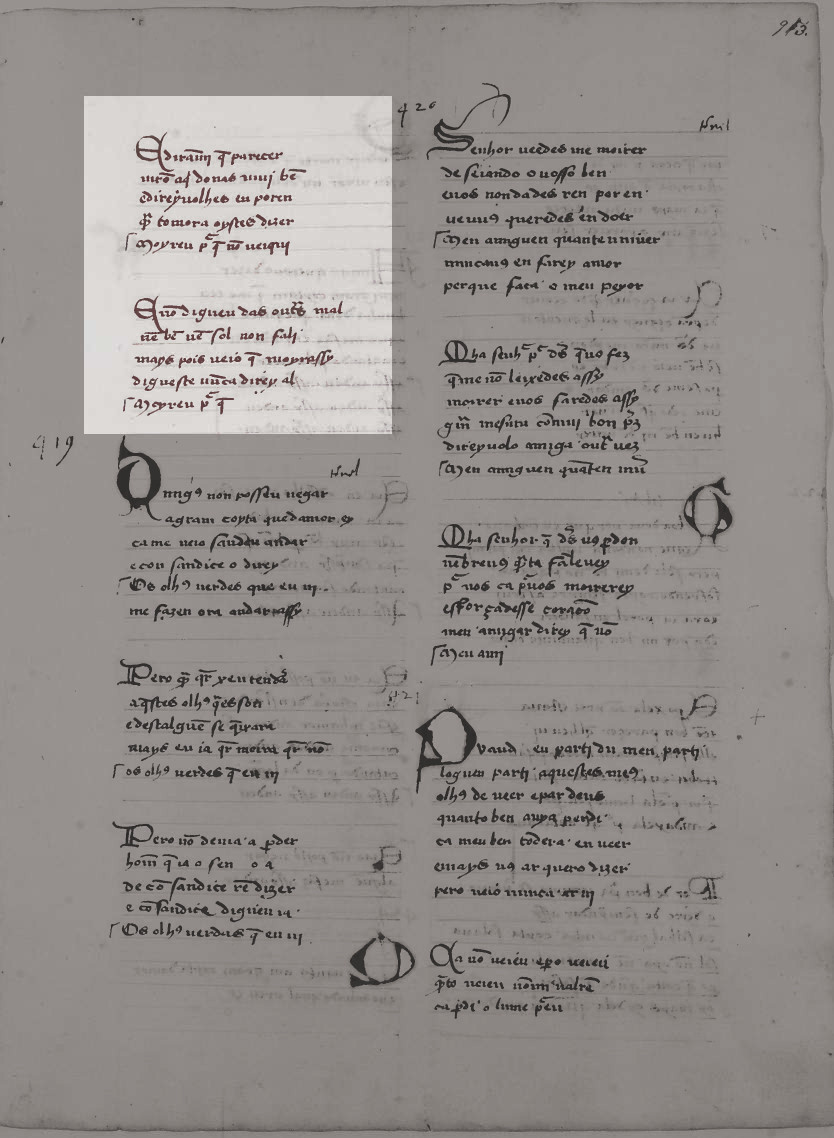 Ediram̃ q̃ parecer
uirõ aq̃ donas mui bẽ
edireyuolhes eu poren
q̃ tomora oystes dizer
Moyreu p̃ q̃ nõ ueiqui
E nõ digueu das out̃s mal
nẽ bẽ uẽ sol non fali
mays pois ueio q̃ moyrassy
digueste nũca direy al
Moyreu p̃ q̃
419
Amigꝯ non posseu negar
a gram coyta que damor ey
ca me ueio sandeu andar
e con sandice o direy
Os olhꝯ uerdes que eu ui
me fazen ora andar assy
Pero q̃ q̃r xentenda
aq̃stes olhꝯ q̃es son
e destalguẽ se q̃ixara
mays eu ia q̃r moira q̃r nõ
os olhꝯ uerdes q̃ eu ui
Pero nõ deuia a p̱der
homẽ q̃ ia o sen o a
de cõ sandice rẽ dizer
e cõ sandice digueu ia
Os olhꝯ uerdes q̃ eu ui
420
Senhor ueedes me moirer
deseiando o uosso ben
e uos nondades ren poren
ueuus queredes en doer
Meu amiguen quanteu uiuer
nuncauꝯ eu farey amor
per que faca o meu peyor
Mha senh̃ p̃ ds̃ q̃ uo fez
q̃ me nõ leixedes assy
moirer e uos faredes assy
gm̃ mesura cõmui bon p̃z
direyuolo amigo out̃ uez
Meu amiguen quãten uiũ
Mha senhor q̃ ds̃ uꝯ p̱don
nẽbreuꝯ q̃ta fãleuey
p̃ uos ca p̃ uos moirerey
esforçadesse coraçõ
meu amigar direy q̃ nõ
Meu ami
421
Quand eu parti du meu parti
logueu parti aquestes meꝯ
olhꝯ de ueer e par deus
quanto ben auya perdi
ca meu ben todera en ueer
e mays uꝯ ar quero dizer
pero ueio nunca ar ui
Ca nõ ueieu epero ueieu
q̃to ueieu nõmi ual rẽ
ca p̱di o lume p̃en